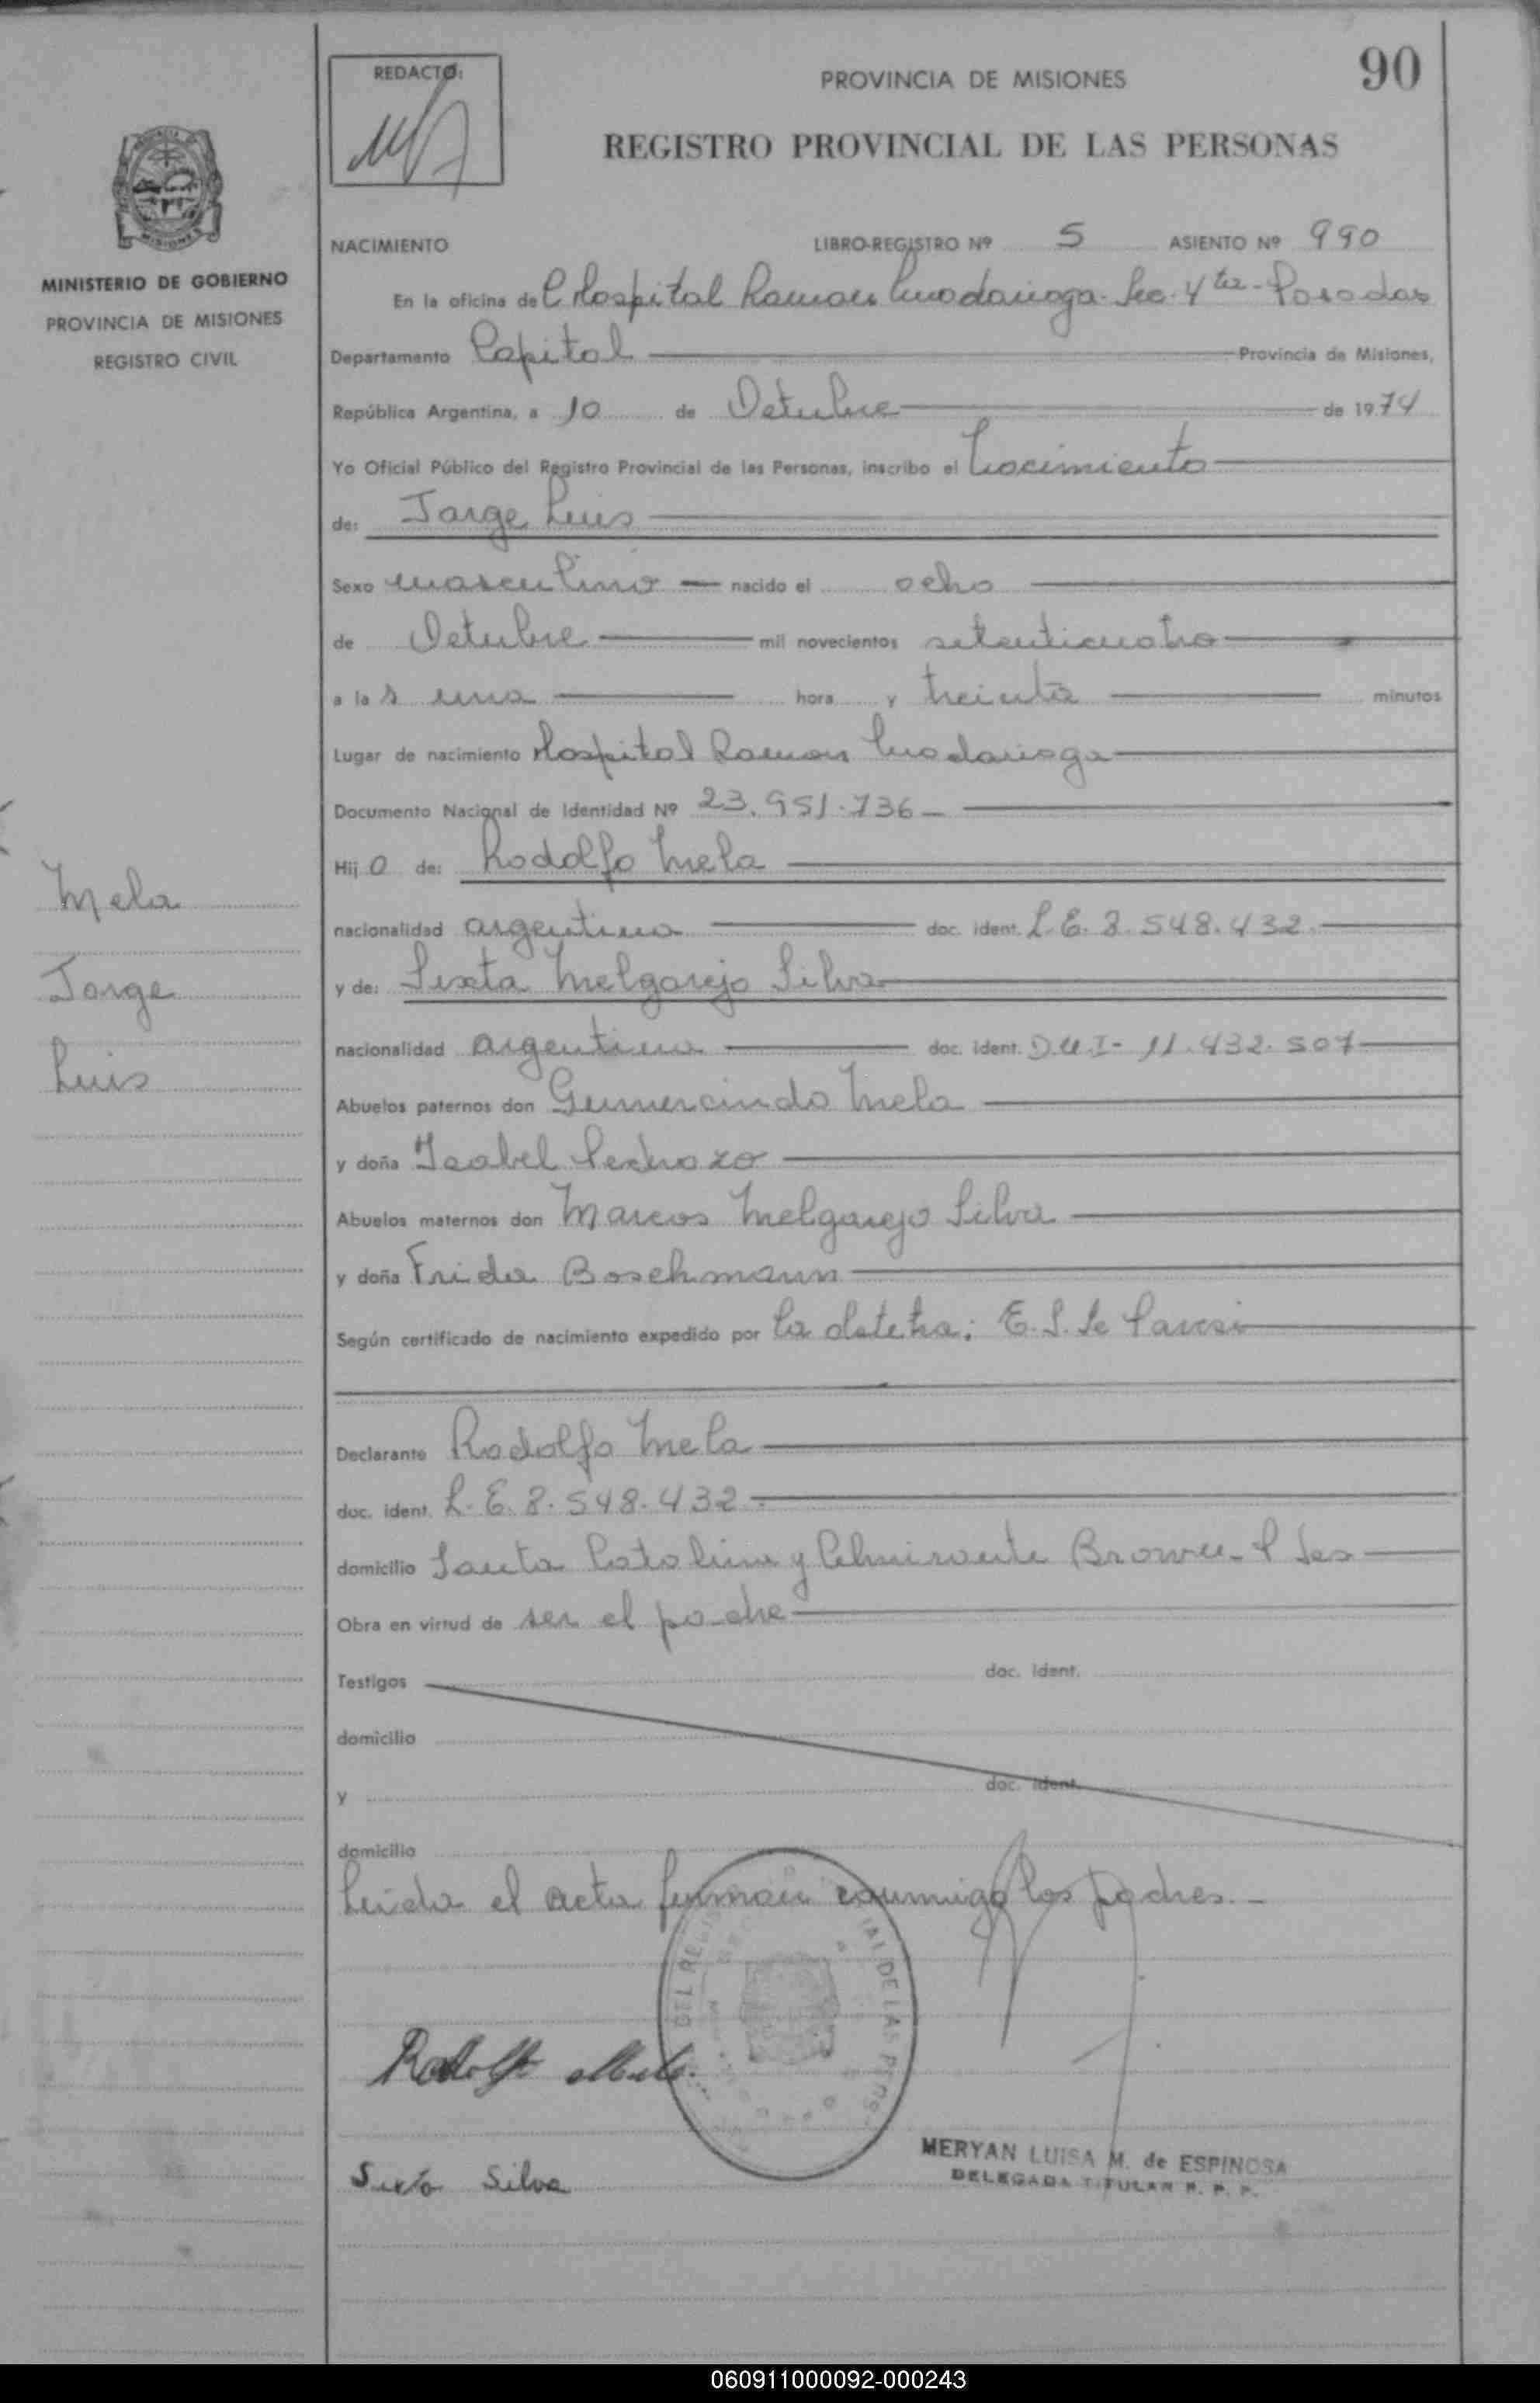 90
REDACTO:
PROVINCIA DE MISIONES
REGISTRO PROVINCIAL DE LAS PERSONAS
MISIONES
MINISTERIO DE GOBIERNO
PROVINCIA DE MISIONES
REGISTRO CIVIL
Mela
Jorge
Luis
NACIMIENTO LIBRO-REGISTRO Nº 5 ASIENTO Nº 990
En la oficina del Hospital Ramon Madariaga - Sec. 4ta - Posadas
Departamento Capital Provincia de Misiones,
República Argentina, a 10 de Octubre de 1974
Yo Oficial Público del Registro Provincial de las Personas, inscribo el Nacimiento
de: Jorge Luis
Sexo masculino nacido el ocho
de Octubre mil novecientos setenticuatro
a la s una hora y treinta minutos
Lugar de nacimiento Hospital Ramon Madariaga
Documento Nacional de Identidad Nº 23.951.736
Hij o de: Rodolfo Mela
nacionalidad argentina doc. ident. L.E. 8.548.432
y de: Sixta Melgarejo Silva
nacionalidad argentina doc. ident. D.U.I- 11.432.507
Abuelos paternos don Gumercindo Mela
y doña Isabel Pedrozo
Abuelos maternos don Marcos Melgarejo Silva
y doña Frida Boschmann
Según certificado de nacimiento expedido por la obstetra: E. S. de
Declarante Rodolfo Mela
doc. ident. L.E. 8.548.432
domicilio Santa Catalina y Almirante Brown - Pdas
Obra en virtud de ser el padre
Testigos doc. ident.
domicilio
y doc. ident.
domicilio
Leida el acta firman conmigo los padres.-
DEL REGIS IAL DE LAS PERS
Rodolfo Mela.
Sixta Silva
MERYAN LUISA M. de ESPINOSA
DELEGADA TITULAR R. P. P.
060911000092-000243